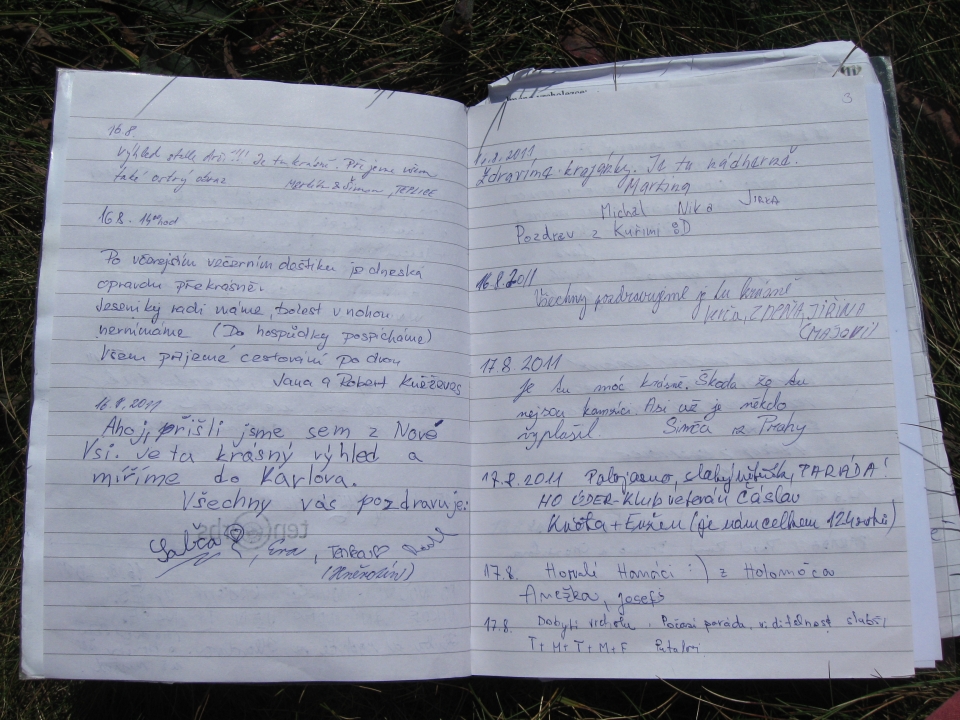 16.8.
Výhled stále Je tu krásně. Přijeme všem
také ostrý obraz Šimon, TEPLICE
16.8. 14 hod
Po včerejším večerním deštíku je dneska
opravdu překrásně.
Jeseníky rádi máme, bolest v nohou
nevnímáme (Do hospůdky pospícháme)
Všem příjemné cestování po dvou
Jana a Robert
16.8.2011
Ahoj, přišli jsme sem z Nové
Vsi. Je tu krásný výhled a
míříme do Karlova.
Všechny vás pozdravuje:
Eva, Terka
3
2011
Zdravíme Je tu nádherně.
Martina
Michal Nika JIRKA
Pozdrav z Kuřimi :D
16.8.2011
Všechny pozdravujeme je tu krásně
ZDENA, JIŘINA
17.8.2011
Je tu moc krásně. Škoda že tu
nejsou kamzíci. Asi už je někdo
vyplašil. Simča z Prahy
17.8.2011 Polojasno, slabý větřík, PARÁDA!
HO ÚDER-klub veterán Čáslav
+ Evžen (je nám celkem 124 roků)
17.8. Hanáci :) z Holomóca
Anežka, Josefs
17.8. Dobytí vrcholu. Počasí paráda, viditelnost slabší,
T+M+T+M+F